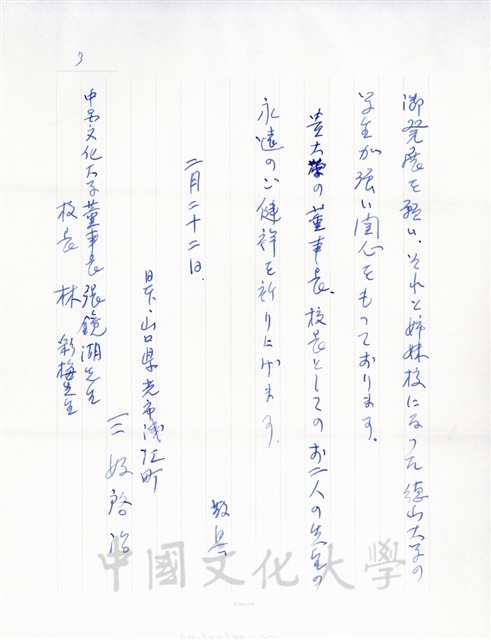 3
御発展を願い、それと姉妹校になった徳山大学の
学生が強い関心をもっております。
貴大学の董事長、校長としてのお二人の先生の
永遠のご健祥を祈り上げます。
二月二十二日、
敬具
日本、山口県光市浅江町
三好啓治
中国文化大学董事長 張鏡湖先生
校長 林彩梅先生
中國文化大學